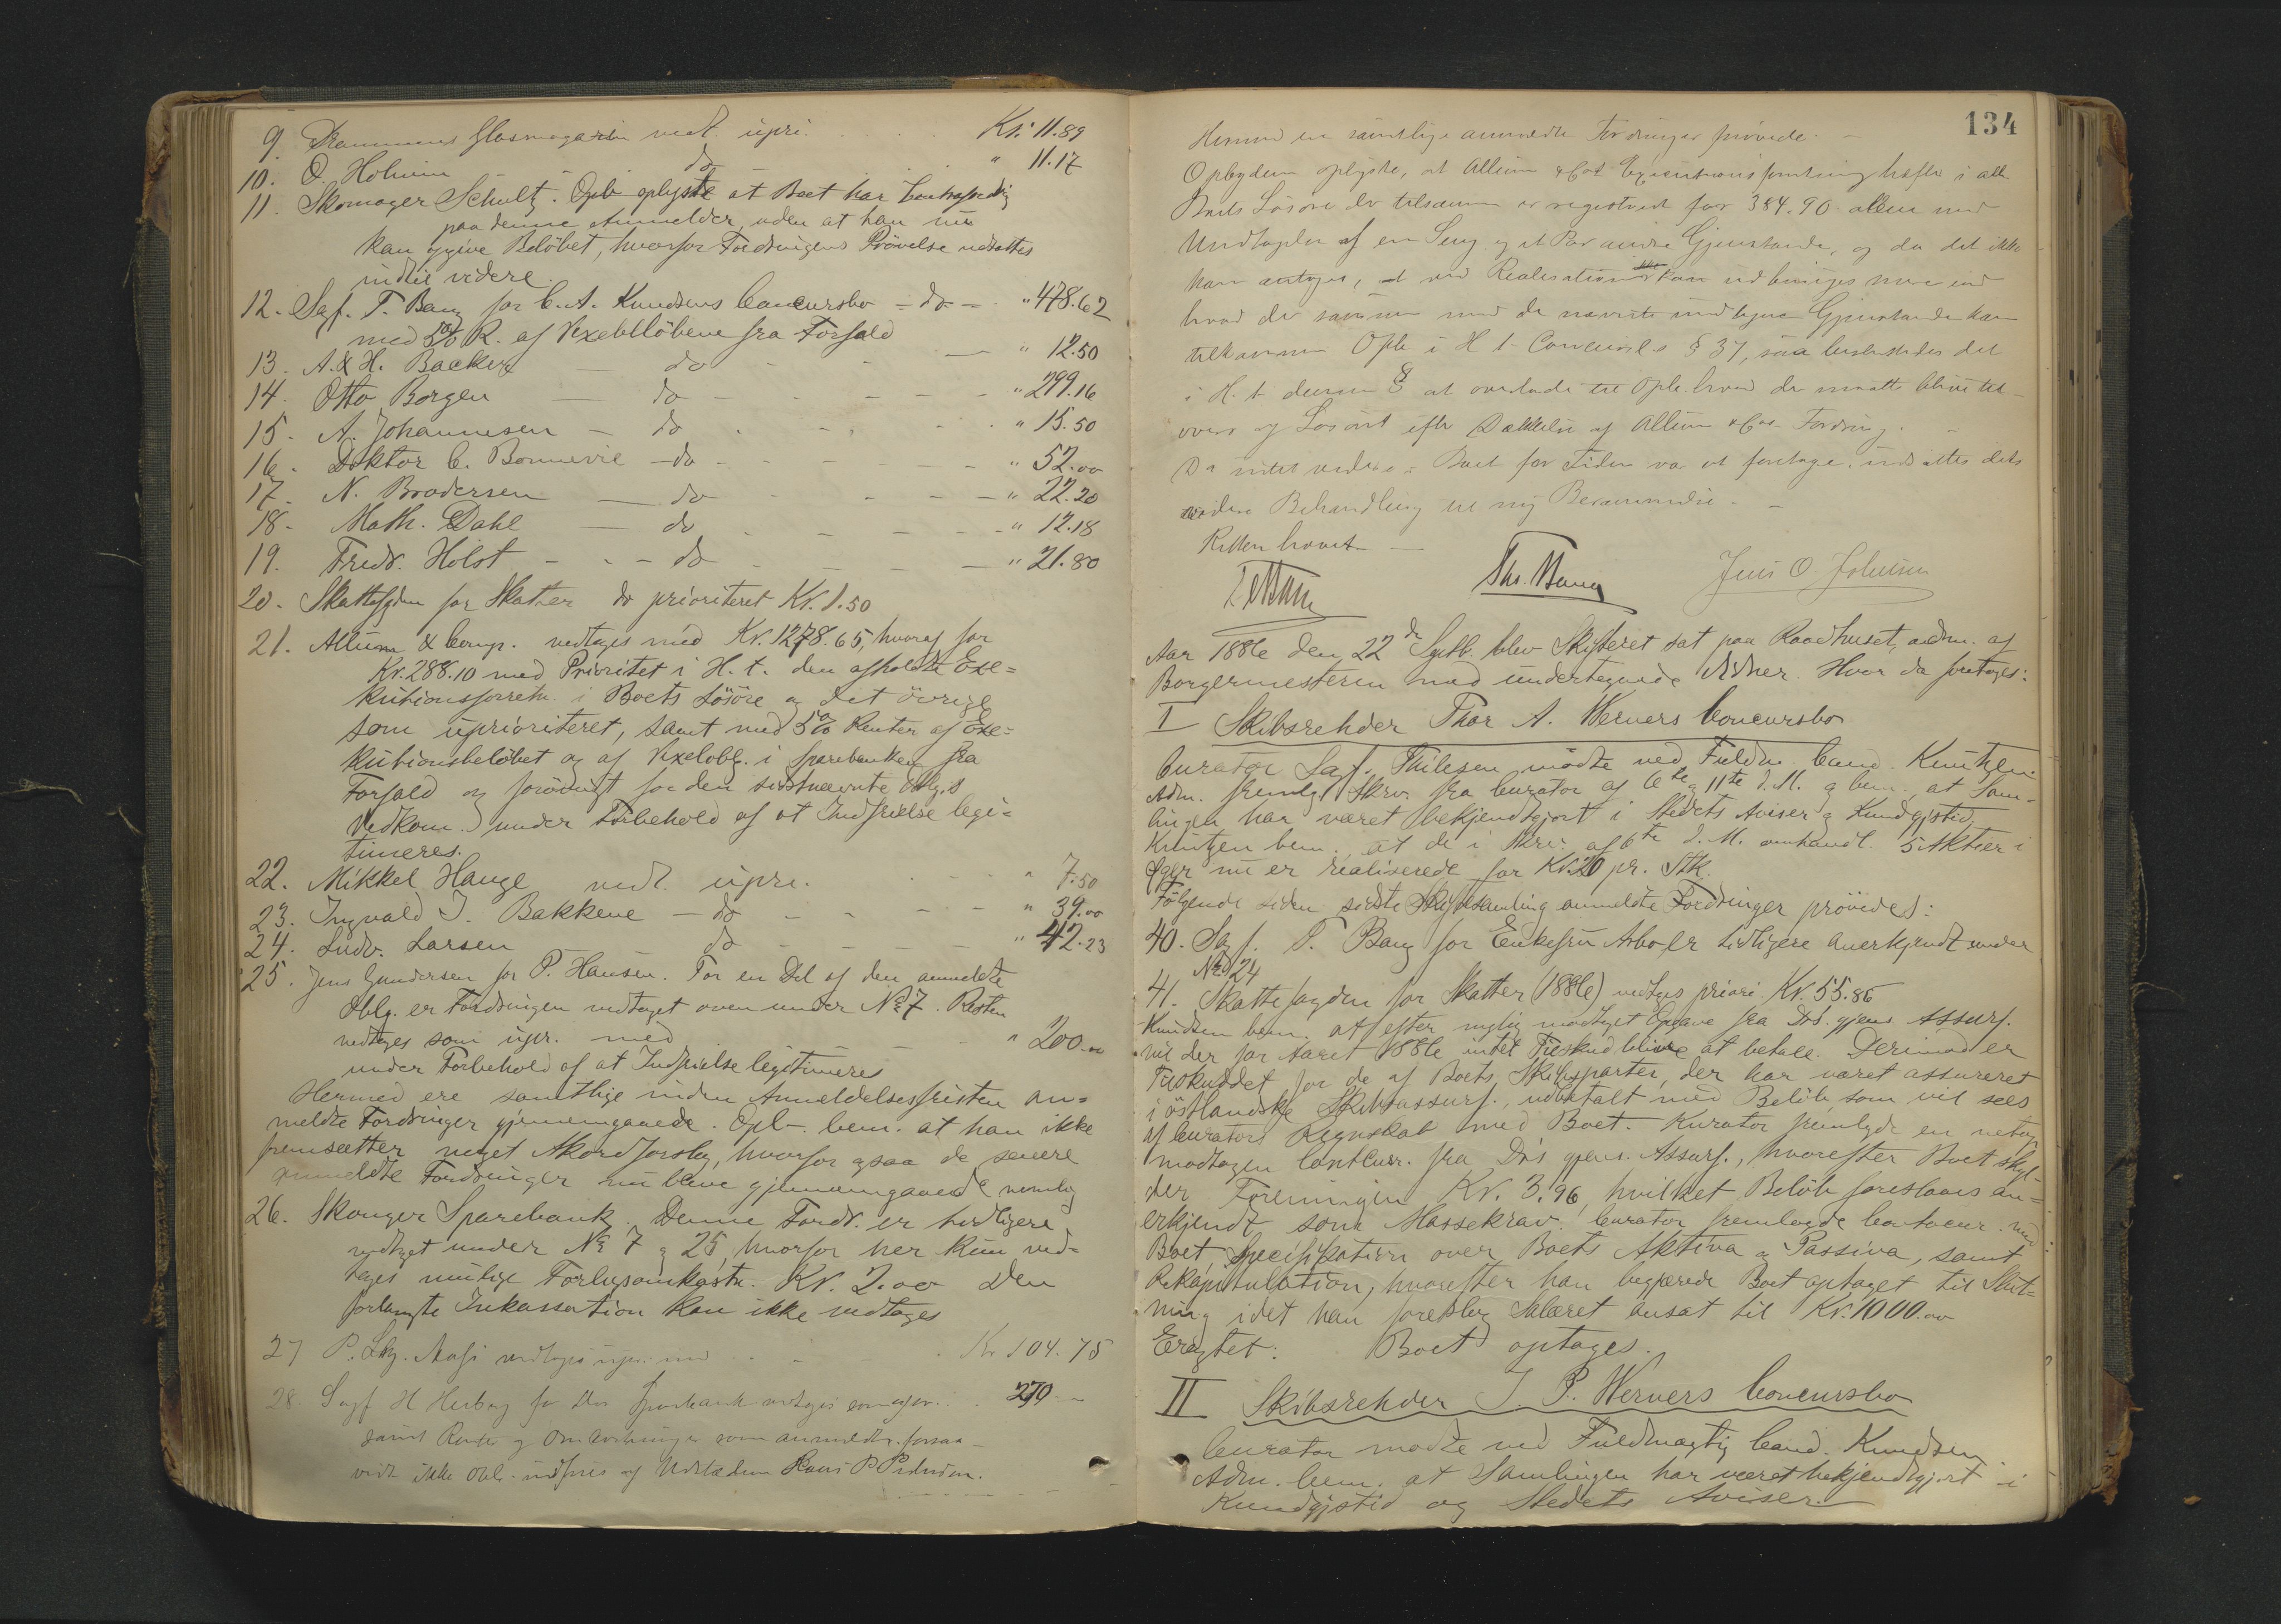 9. Drammens Glasmagasin vedt. upri. Kr. 11.89
10. O. Holmen do " 11.17
11. Skomager Schultz. Oplb. oplyste at Boet har Contrafordring
paa denne Anmelder, uden at han nu
kan opgive Beløbet, hvorfor Fordringens Prøvelse udsattes
indtil videre.
12. Sagf. T. Bang for C. A. Knudsens Concursbo - do - " 478.62
med 5% R. af Vexelbeløbene fra Forfald
13. A. & H. Backer - do - " 12.50
14. Otto Borgen - do - " 299.16
15. A. Johannesen - do " 15.50
16. Doktor C. Bonnevie - do - " 52.00
17. N. Brodersen - do - " 22.20
18. Math. Dahl - do - " 12.18
19. Fredr. Holst - do - " 21.80
20. Skattefogden for Skatter do prioriteret Kr. 1.50
21. Allum & Comp. vedtages med Kr. 1278.65, hvoraf for
Kr. 288.10 med Prioritet i H. t. den afholdte Exe=
kutionsforretn. i Boets Løsøre og det øvrige
som uprioriteret, samt med 5% Renter af Exe=
kutionsbeløbet og af Vexeloblg. i Sparebanken fra
Forfald og forøvrigt for den sidstnævnte Oblg.s
Vedkom. under Forbehold af at Indfrielse legi=
timeres.
22. Mikkel Hauge vedt. upri. " 7.50
23. Ingvald J. Bakkene - do - " 39.00
24. Ludv. Larsen do - " 42.23
25. Jens Gundersen for P. Hansen. For en Del af den anmeldte
Oblg. er Fordringen vedtaget oven under No 7. Resten
vedtages som upr. med " 200.00
under Forbehold af at Indfrielse legitimeres
Hermed ere samtlige inden Anmeldelsesfristen an=
meldte Fordringer gjennemgaaede. Opl- bem. at han ikke
fremsætter noget Akordforslag, hvorfor ogsaa de senere
anmeldte Fordringer nu bleve gjennemgaaede nemlig
26. Skouger Sparebank. Denne Fordr. er tidligere
vedtaget under No 7 & 25, hvorfor her kun ved=
tages mulige Forligsomkostn. Kr. 2.00 Den
forlangte Inkassation kan ikke vedtages
27 P. Lky. vedtages upri. med Kr 104.75
28. Sagf H Herberg for Drs Sparebank vedtages som upr. 270.-
samt Renter og Omkostninger som anmeldt. forsaa-
vidt ikke Obl. indfries af Udstederen Hans P Pedersen.
134
Hermed er samtlige anmeldte Fordringer prøvede. -
Opbyderen oplyste, at Allum & Co's Executionsforretning hefter i alt
Boets Løsøre der tilsammen er registreret for 384.90 alene med
Undtagelse af en Seng og et Par andre Gjenstande, og da det ikke
kan antages, at ved Realisation kan udbringes mere end
hvad der sammen med de nævnte undtagne Gjenstande kan
tilkomme Oplb i H t Concursl.s § 37, saa besluttedes det
i H. t. denne § at overlade til Oplb. hvad der maatte blive til-
overs af Løsøret efter Dækkelse af Allum & Co's Fordring. -
Da intet videre i Boet for Tiden var at foretage, udsattes dets
videre Behandling til ny Berammelse. -
Retten hævet -
Tho. Bang Jens O. Johnsen
Aar 1886 den 22de Septb. blev Skifteret sat paa Raadhuset, adm. af
Borgermesteren med undertegnede Vidner. Hvor da foretages:
I Skibsrehder Thor A. Werners Concursbo
Curator Sagf. Thilesen mødte ved Fuldm. Cand. Knutzen.
Adm. fremlgd. Skriv. fra Curator af 6te & 11te d. M. & bem. at Sam-
lingen har været bekjendtgjort i Stedets Aviser & Kundgjstid.
Knutzen bem. at de i Skriv. af 6te d. M. omhandl. 5 Aktier i
Æger nu er realiserede for Kr. 20 pr. Stk.
Følgende siden sidste Skiftesamling anmeldte Fordringer prøvedes:
40. Sagf. T. Bang for Enkefru Arbo er tidligere anerkjendt under
No 24
41. Skattefogden for Skatter (1886) vedtges priori. Kr. 55.86
Knudsen bem. at efter nylig modtaget Opgave fra Drs. gjens. Assurf.
vil der for Aaret 1886 intet Tilskud blive at betale. Derimod er
Tilskuddet for de af Boets Skibsparter, der har været assureret
i østlandske Skibsassurf., udbetalt med Beløb som vil sees
af Curators Regnskab med Boet. Kurator fremlgde en netop
modtagen Contocur. fra Drs gjens. Assurf., hvorefter Boet skyl-
der Foreningen Kr. 3.96, hvilket Beløb foreslaaes an=
erkjendt som Massekrav. Curator fremlagde Contocur. med
Boet, Specifikation over Boets Aktiva & Passiva, samt
Rekapitulation, hvorefter han begjærede Boet optaget til Slut=
ning idet han foreslog Salæret ansat til Kr. 1000.00
Eragtet: Boet optages.
II Skibsrehder J. P. Werners Concursbo
Curator mødte ved Fuldmægtig Cand. Knudsen
Adm. bem. at Samlingen har været bekjendtgjort i
Kundgjstid og Stedets Aviser. -